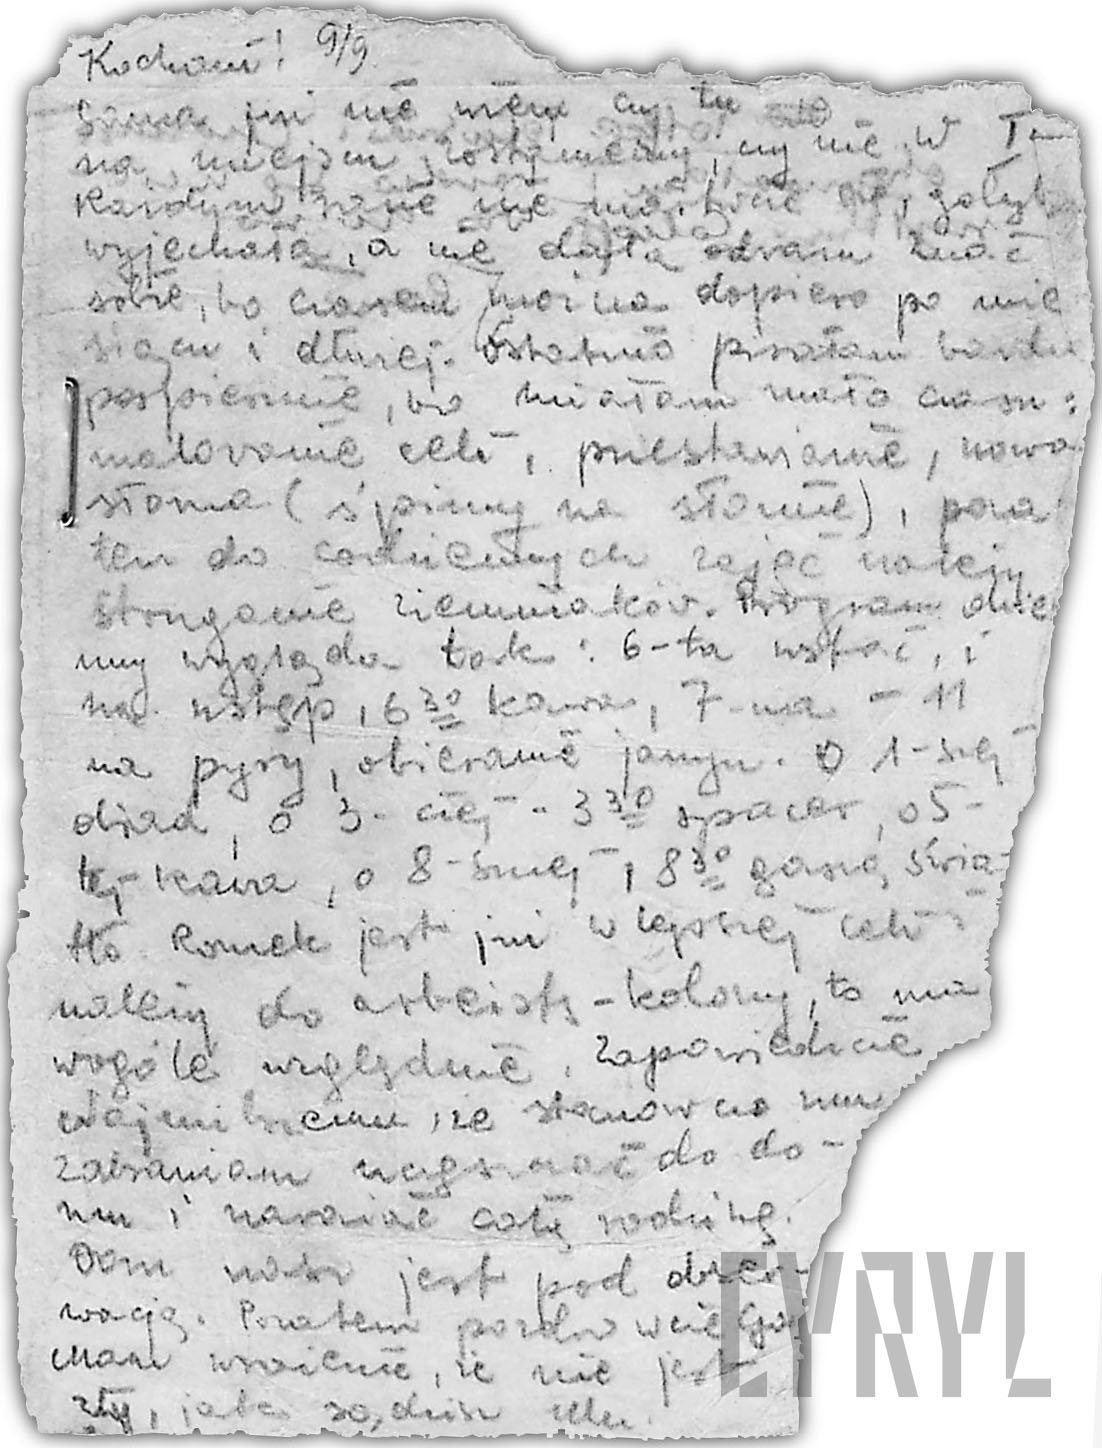 Kochani! 9/9.
Sama już nie wiem czy tu
na miejscu zostaniemy, czy nie. W
każdym razie nie martwcie się, gdyby
wyjechała, a nie dała odrazu znać
sobie, bo czasem można dopiero po mie
siącu i dłużej. Ostatnio pisałam bardzo
pospiesznie, bo miałam mało czasu:
malowanie celi, przestawianie, nowa
słoma (śpimy na słomie), poza
tem do codziennych zajęć należy
struganie ziemniaków. Program dzie
nny wygląda tak: 6-ta wstać, i
na wstęp, 6³⁰ kawa, 7-ma - 11
na pyry, obieranie jarzyn. O 1-szej
obiad, o 3-ciej - 3³⁰ spacer, o 5-
tej kawa, o 8-smej, 8³⁰ gaszą świa-
tło. Romek jest już w lepszej celi i
należy do arbeits-kolony, to ma
wogóle względnie. Zapowiedzcie
że stanowczo mu
zabraniam do do-
mu i narażać całą rodzinę.
Dom nasz jest pod obser-
wacją. Pozatem pozdrówcie
Mam wrażenie, że nie jest
zły, jak sądzisz
CYRYL